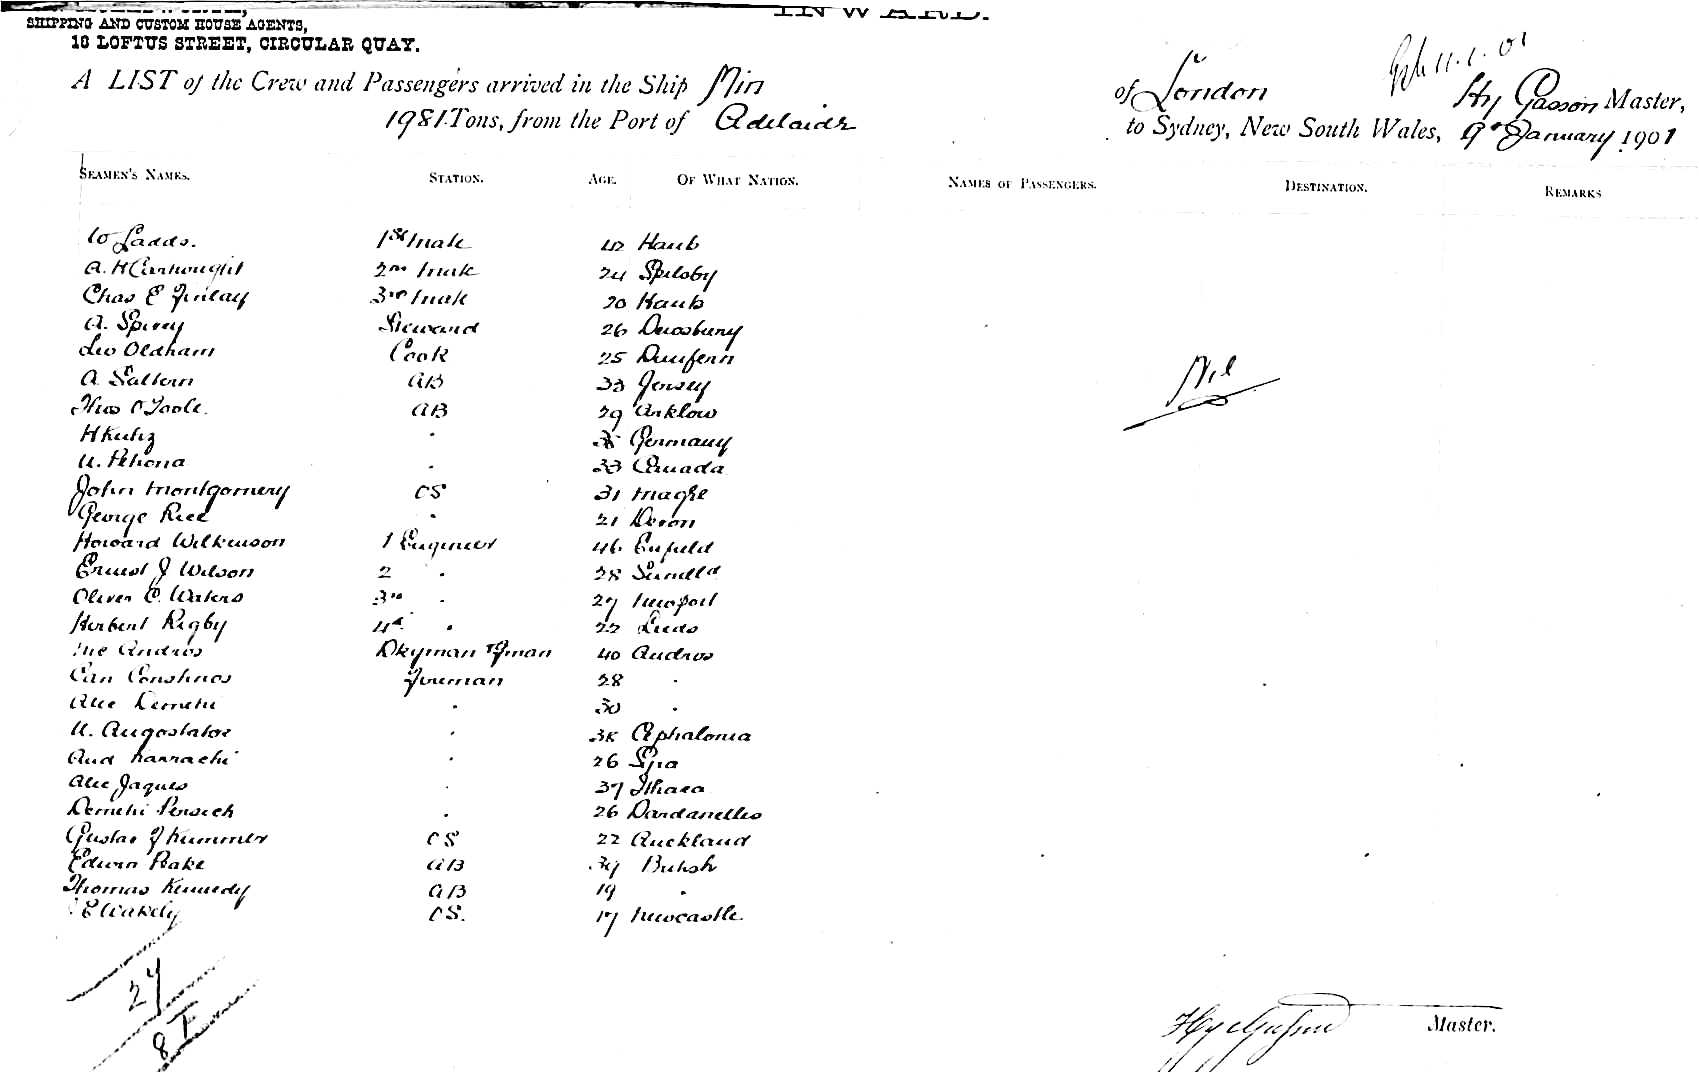 INWARD.
SHIPPING AND CUSTOM HOUSE AGENTS,
10 LOFTUS STREET, CIRCULAR QUAY.
11.1.01
A LIST of the Crew and Passengers arrived in the Ship Min of London Hy Gasson Master,
1981 Tons, from the Port of Adelaide to Sydney, New South Wales, 9th January 1901
SEAMEN'S NAMES. STATION. AGE. OF WHAT NATION. NAMES OF PASSENGERS. DESTINATION. REMARKS
W Ladds. 1st mate 42
A. H Cartwright 2nd mate 24 Spilsby
Chas E Finlay 3rd mate 20
A. Spivey Steward 26 Dewsbury
Leo Oldham Cook 25
A. Saltern AB 33 Jersey
Nil
Thos O'Toole. AB 29 Arklow
H Kuhz Germany
33 Canada
John Montgomery OS 31
George Rice " 21 Devon
Howard Wilkinson 1 Engineer 46 Enfield
Ernest J Wilson 2 " 28
Oliver C. Waters 3rd " 27 Newport
Herbert Rigby 4th " 22 Leeds
Andros Dkyman & Fman 40 Andros
Fireman 28 "
" 30 "
" Cephalonia
" 26
Alec Jaques " 37 Ithaca
" 26 Dardanelles
Gustav J Kummer OS 22 Auckland
Edwin Peake AB 39 British
Thomas Kennedy AB 19 "
E Wakely OS. 17 Newcastle.
27
8
Hy Gasson Master.